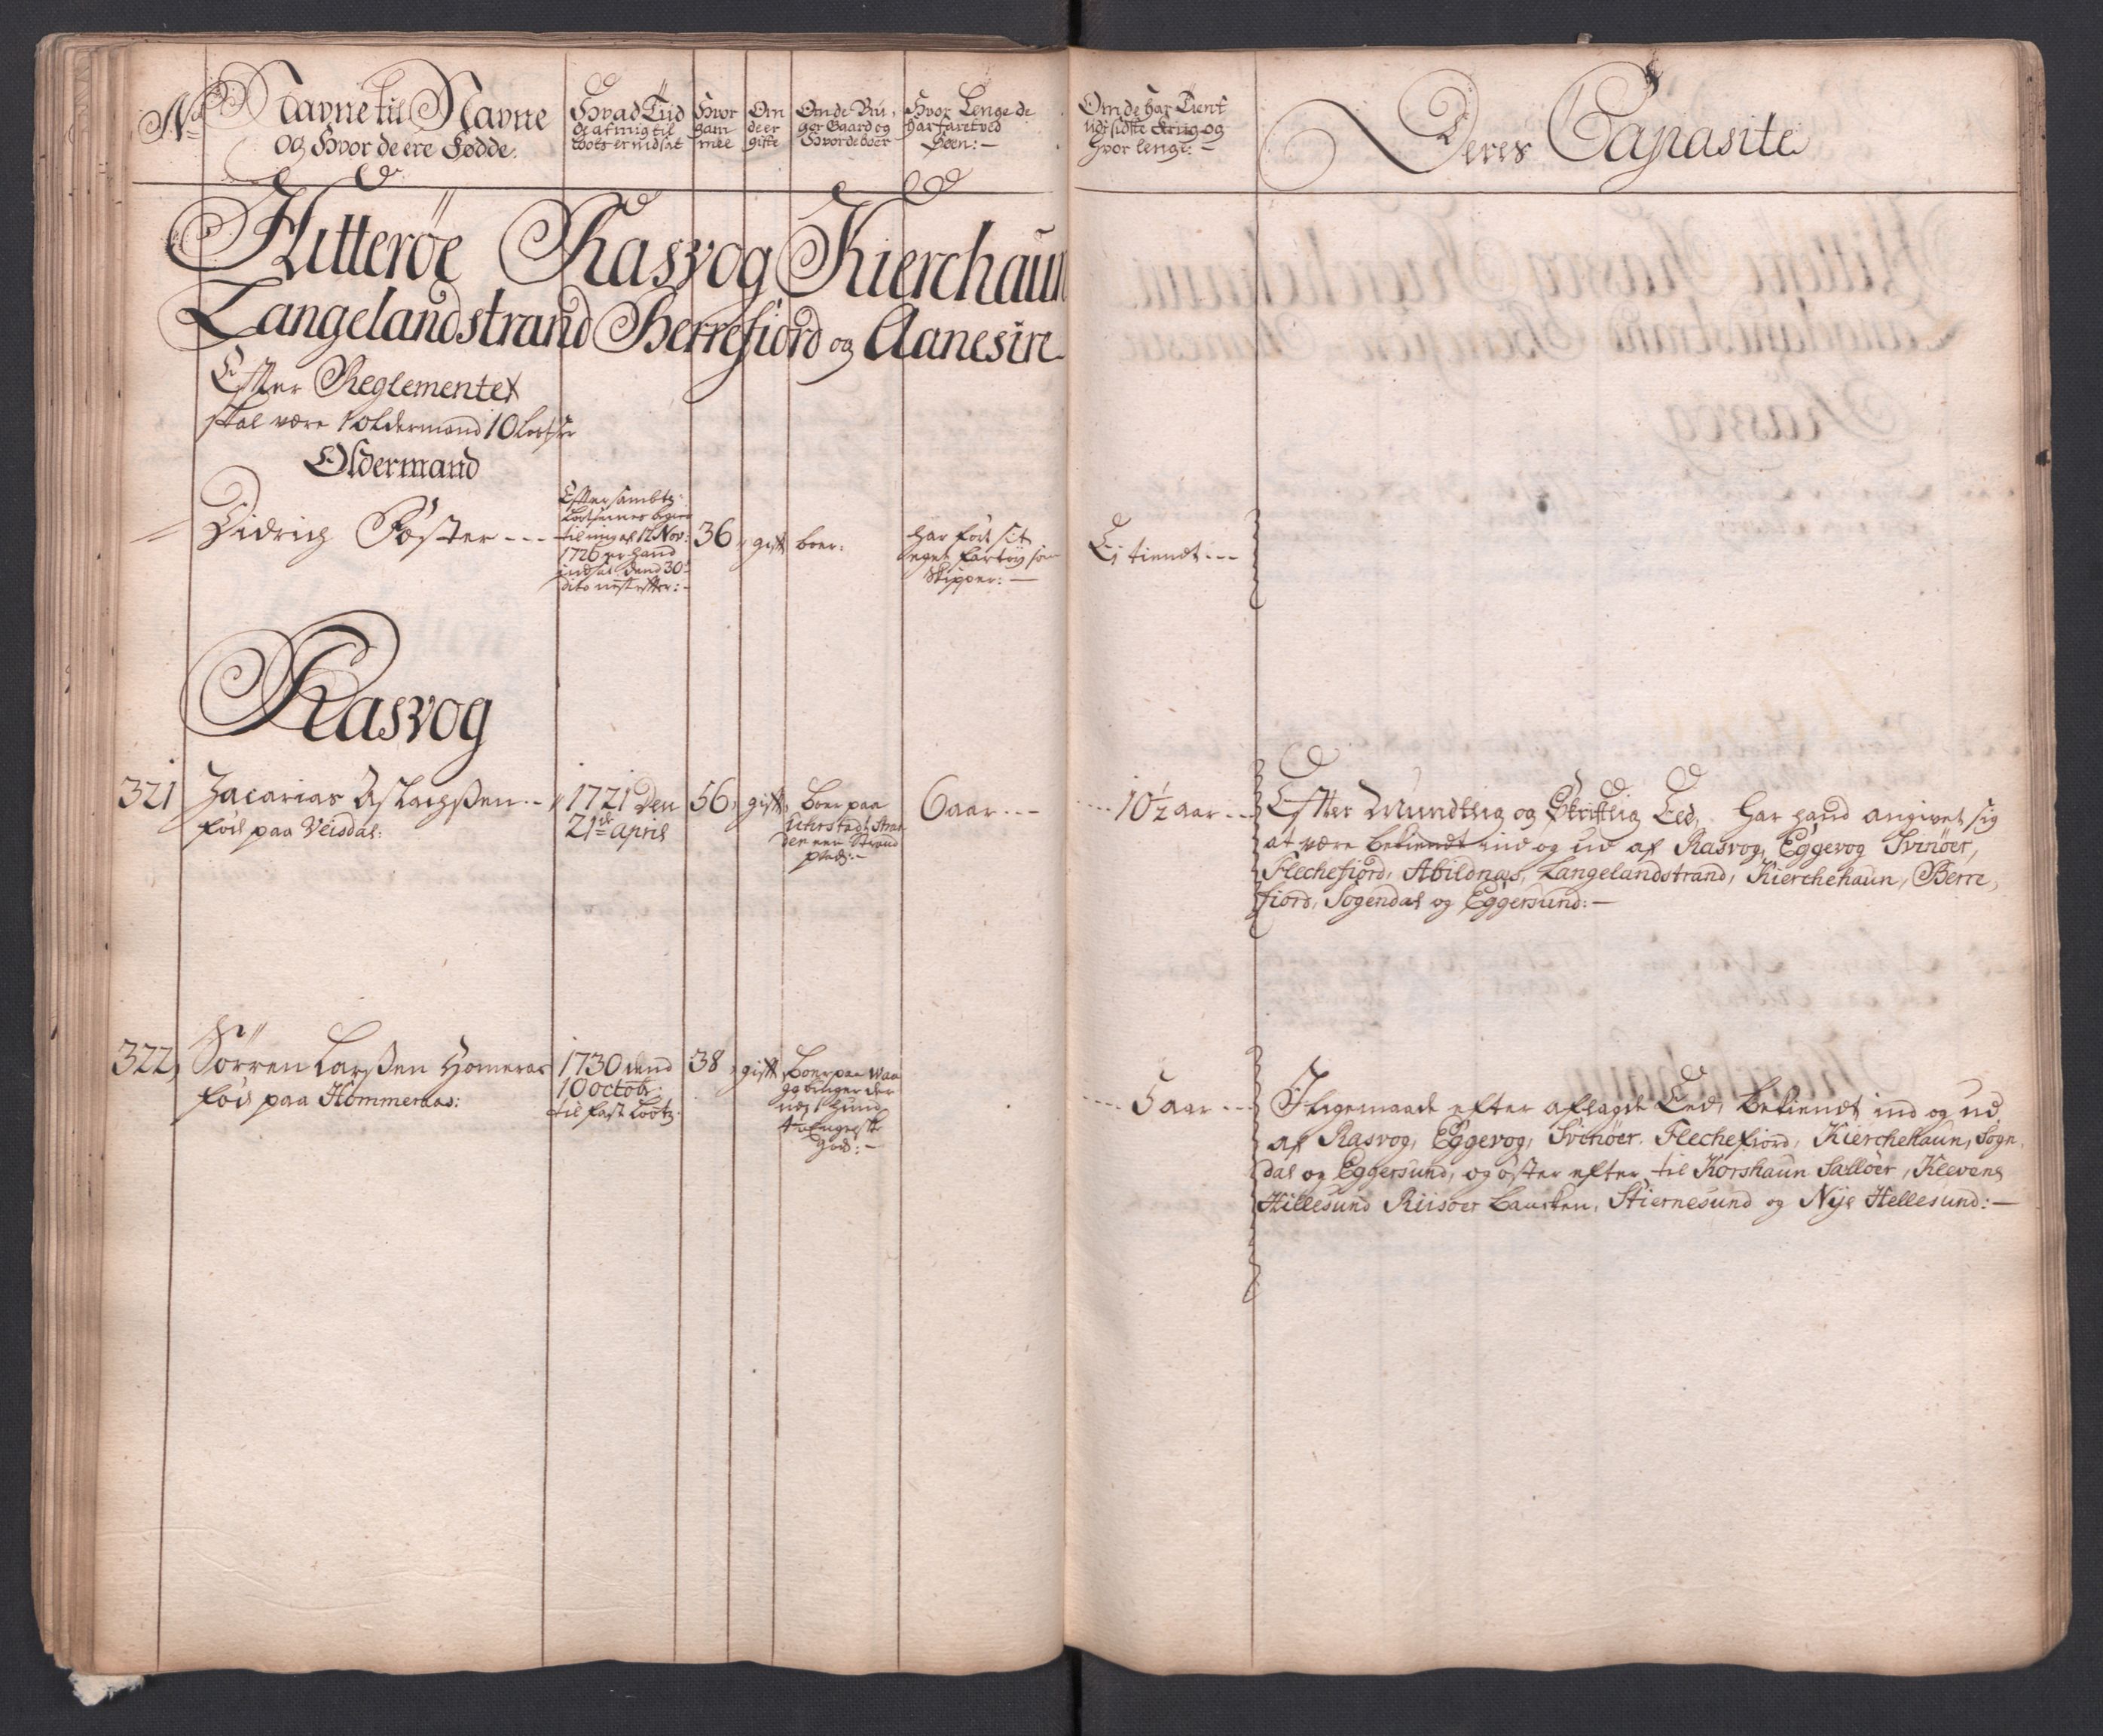 No
Navne til Navne
og Hvor de ere Fødde.
Hvad Tiid
de af mig til
Loots er indsat
Hvor
gam
mle
Om
de er
gifte
Om de Bru,
ger Gaard og
Hvor de boer
Hvor Lenge de
har faret ved
Søen: —
Om de har Tient
udj sidste Krig og
hvor lenge: —
Deres Capasite
Hitterøe Rasvog Kierchaun
Langelandstrand Berrefiord og Aanesire
Effter Reglementet
skal være 1 oldermand 10 Lootser
Oldermand
Didrich Føster - - -
Effter samtl:
Lootsernes begier
til mig af 12 Nov:
1726 er hand
indsat dend 30te
dito nest effter: -
36
gift
boer:
har ført sit
eget Fartøy som
Skipper: —
Ej tient - - -
Rasvog
321
Zacarias Aslachsßen - -
Fød paa Veisdal:
1721 den
21de april
56,
gift,
boer paa
Strand
plads: -
6 aar - - -
- - - 10½ aar - -
Effter Mundtlig og Skriftlig Eed, har hand angivet sig
at være bekiendt ind og ud af Rasvog, Eggevog Svinøer,
Flechefiord, Abildnæs, Langelandstrand, Kierchehaun, Berre,
fiord, Sogendal og Eggersund: —
322,
Sørren Larsßen Homeraas
Fød paa Hommeraas:
1730 dend
10 octobr:
til fast Lootz.
38,
gift,
Boer paa Waa
og bruger der
udj 1 hund
God: —
- - - 5 aar - - -
Ligemaade efter aflagde Eed, bekiendt ind og ud
af Rasvog, Eggevog, Svinøer. Flechefiord, Kierchehaun, Sogn,
dal og Eggersund, og øster efter til Korshaun Salløer, Klevens
Hillesund Riisøer Stiernesund og Nye Hellesund: —